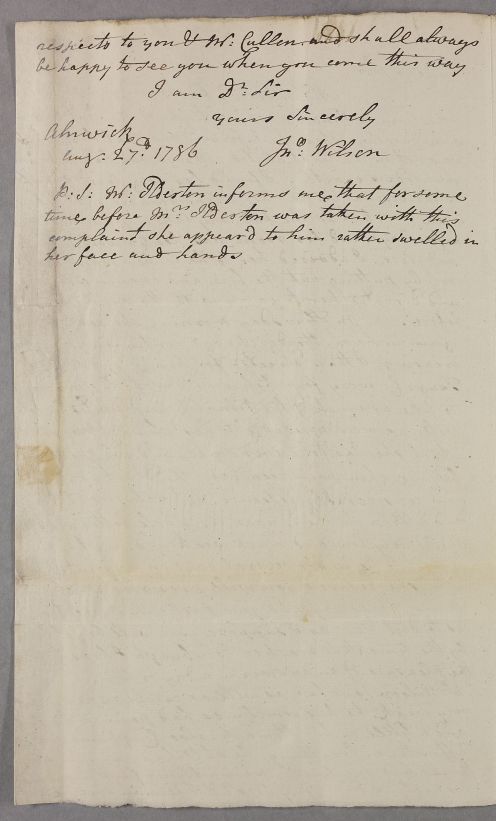 respects to you & Mr: Cullen and shall always
be happy to see you when you come this way
I am Dr: Sir
yours Sincerely
Alnwick
Aug: 27th: 1786 Jno: Wilson
P: S: Mr: Ilderton informs me, that for some
time, before Mrs: Ilderton was taken with this
complaint she appear'd to him rather swelled in
her face and hands